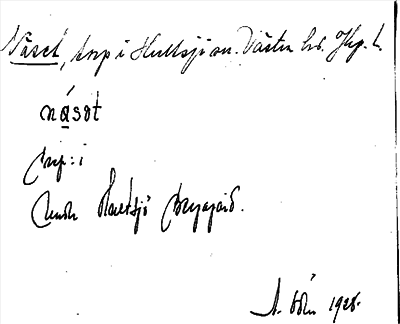 Näset, torp i Hultsjö sn. Västra hd. Jkp. l.
násət
torp: i
under Hultsjö
1928.